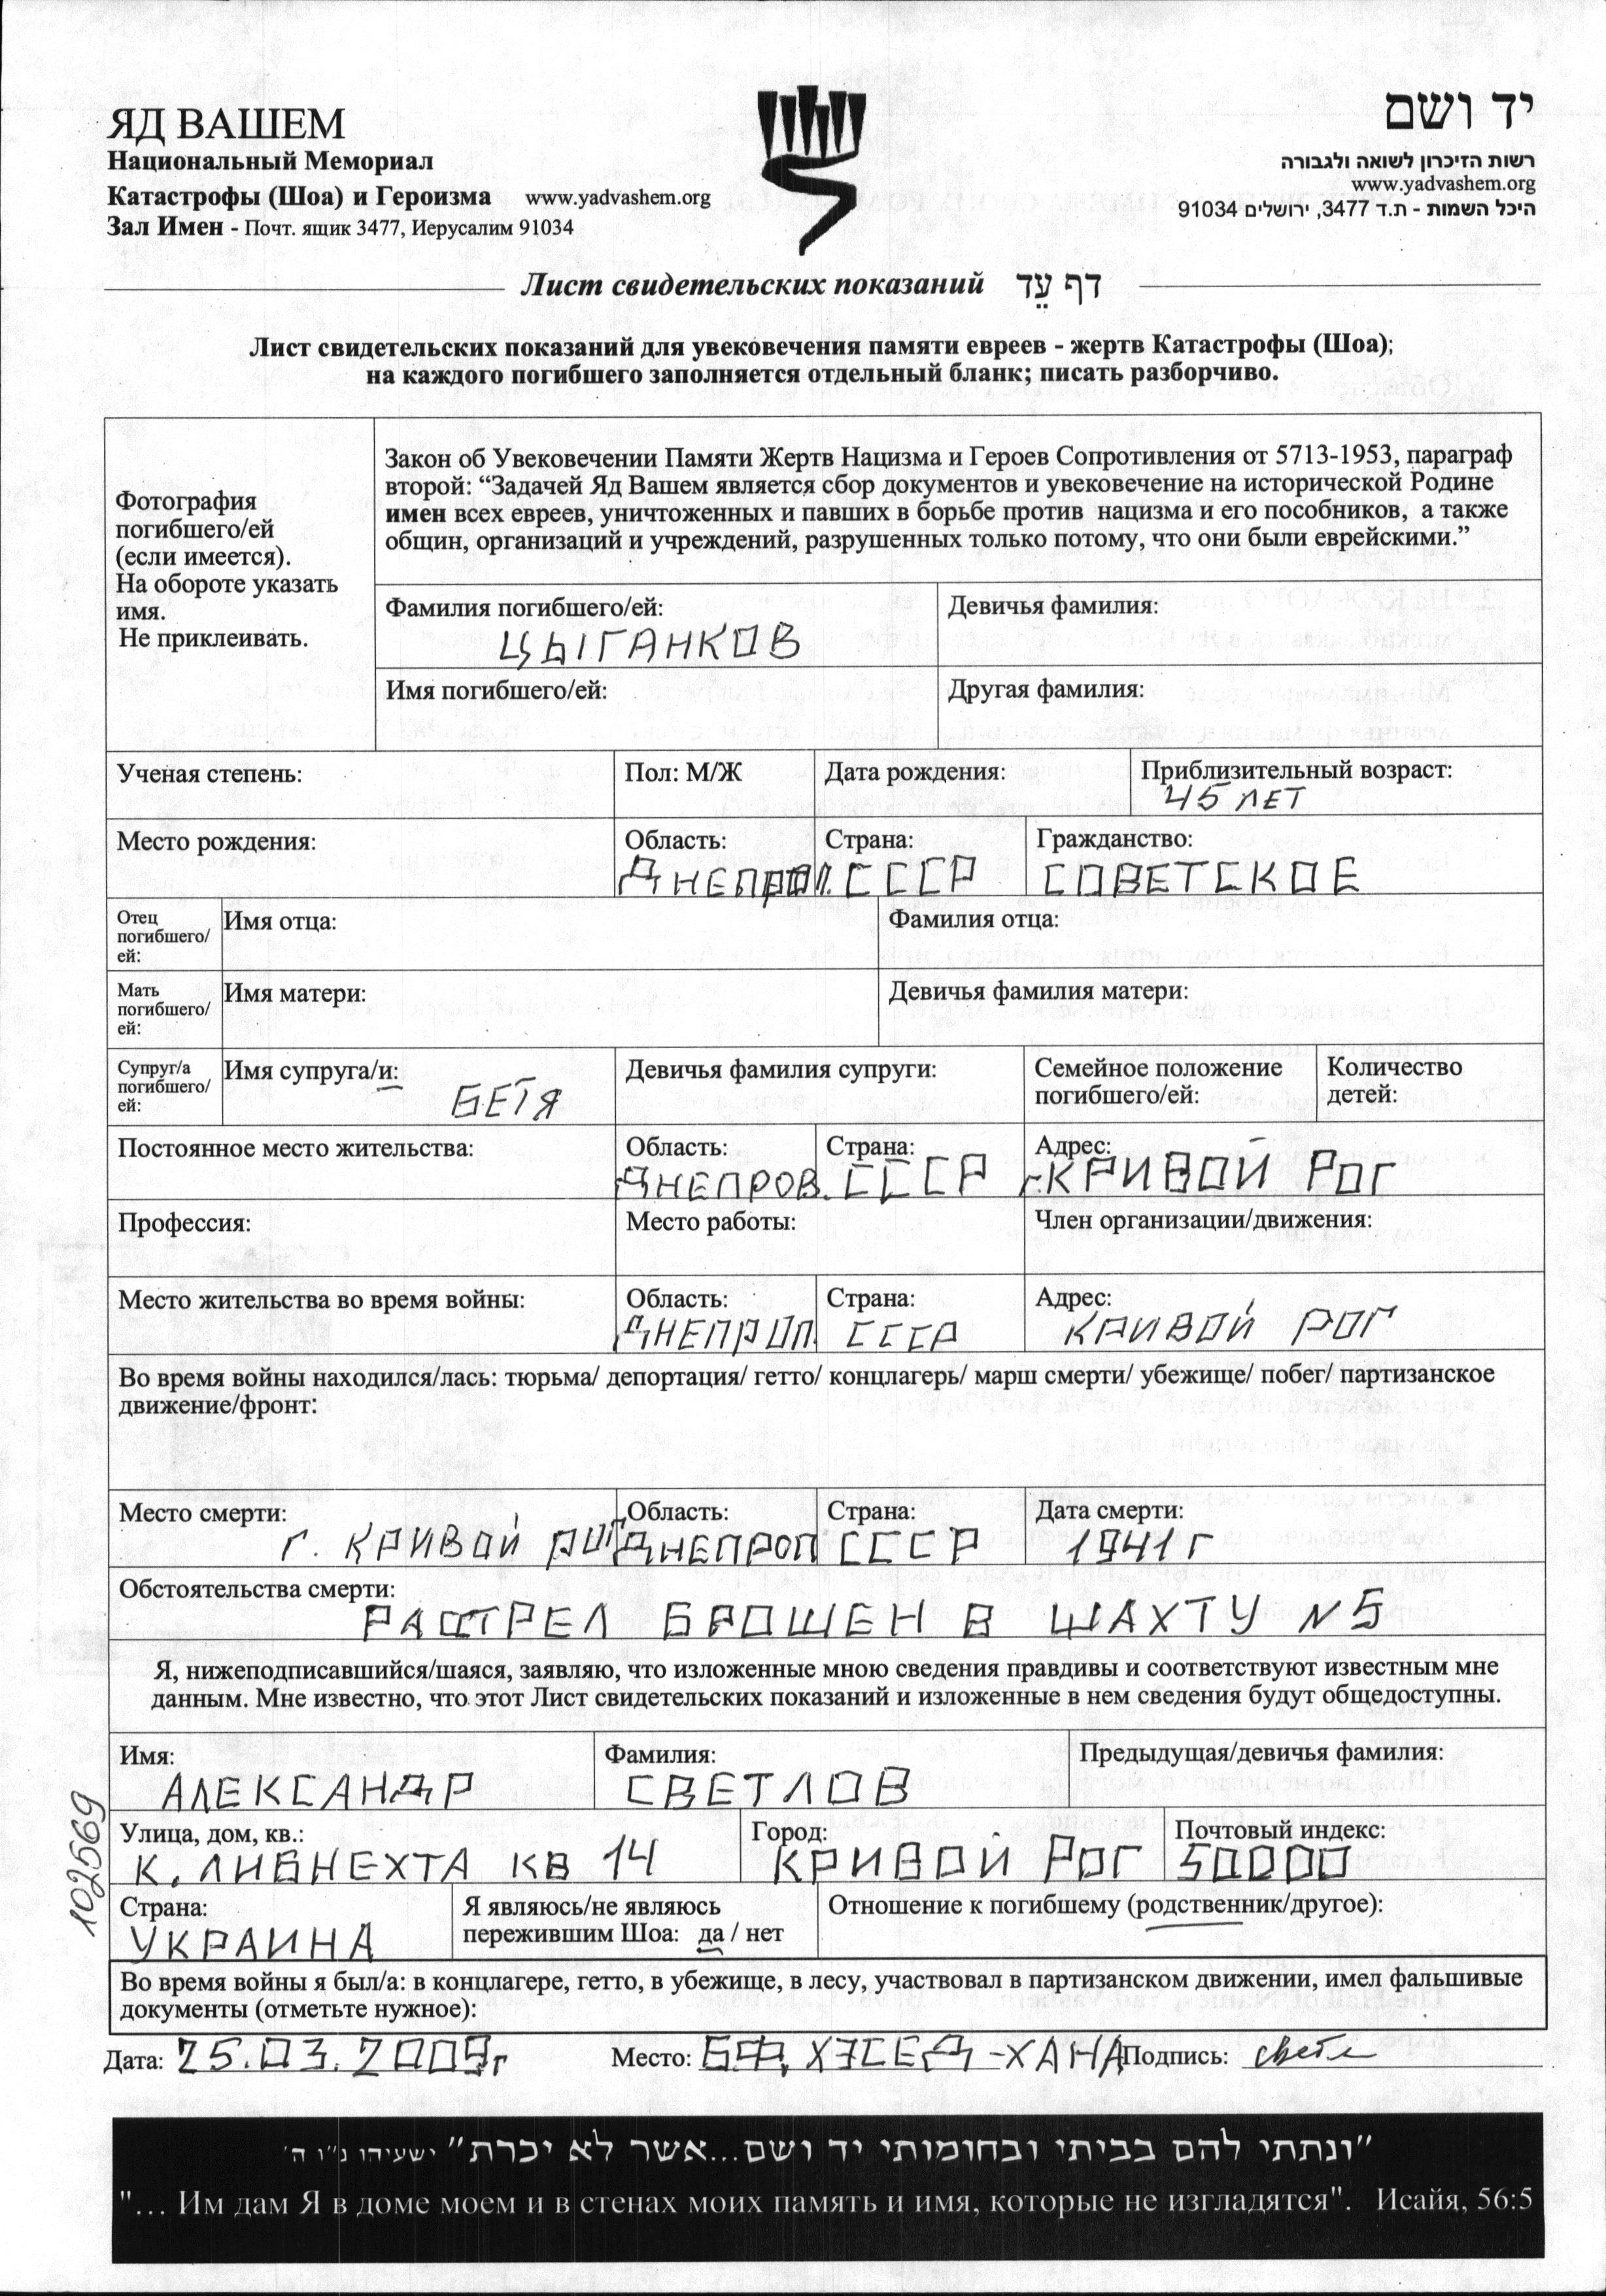 ЯД ВАШЕМ
Национальный Мемориал
Катастрофы (Шоа) и Героизма www.yadvashem.org
Зал Имен - Почт. ящик 3477, Иерусалим 91034
יד ושם
רשות הזיכרון לשואה ולגבורה
www.yadvashem.org
היכל השמות - ת.ד 3477, ירושלים 91034
Лист свидетельских показаний דף עֵד
Лист свидетельских показаний для увековечения памяти евреев - жертв Катастрофы (Шоа);
на каждого погибшего заполняется отдельный бланк; писать разборчиво.
Фотография
погибшего/ей
(если имеется).
На обороте указать
имя.
Не приклеивать.
Закон об Увековечении Памяти Жертв Нацизма и Героев Сопротивления от 5713-1953, параграф
второй: “Задачей Яд Вашем является сбор документов и увековечение на исторической Родине
имен всех евреев, уничтоженных и павших в борьбе против нацизма и его пособников, а также
общин, организаций и учреждений, разрушенных только потому, что они были еврейскими.”
Фамилия погибшего/ей: Девичья фамилия:
ЦЫГАНКОВ
Имя погибшего/ей: Другая фамилия:
Ученая степень: Пол: М/Ж Дата рождения: Приблизительный возраст:
45 ЛЕТ
Место рождения: Область: Страна: Гражданство:
ДНЕПРОП. СССР СОВЕТСКОЕ
Отец
погибшего/
ей:
Имя отца: Фамилия отца:
Мать
погибшего/
ей:
Имя матери: Девичья фамилия матери:
Супруг/а
погибшего/
ей:
Имя супруга/и: Девичья фамилия супруги: Семейное положение
погибшего/ей: Количество
детей:
БЕТЯ
Постоянное место жительства: Область: Страна: Адрес:
ДНЕПРОВ. СССР г.КРИВОЙ РОГ
Профессия: Место работы: Член организации/движения:
Место жительства во время войны: Область: Страна: Адрес:
ДНЕПРОП. СССР КРИВОЙ РОГ
Во время войны находился/лась: тюрьма/ депортация/ гетто/ концлагерь/ марш смерти/ убежище/ побег/ партизанское
движение/фронт:
Место смерти: Область: Страна: Дата смерти:
г. КРИВОЙ РОГ ДНЕПРОП СССР 1941 г
Обстоятельства смерти:
РАССТРЕЛ БРОШЕН В ШАХТУ N5
Я, нижеподписавшийся/шаяся, заявляю, что изложенные мною сведения правдивы и соответствуют известным мне
данным. Мне известно, что этот Лист свидетельских показаний и изложенные в нем сведения будут общедоступны.
Имя: Фамилия: Предыдущая/девичья фамилия:
АЛЕКСАНДР СВЕТЛОВ
Улица, дом, кв.: Город: Почтовый индекс:
К. ЛИБНЕХТА КВ 14 КРИВОЙ РОГ 50000
102569
Страна: Я являюсь/не являюсь
пережившим Шоа: да / нет Отношение к погибшему (родственник/другое):
УКРАИНА
Во время войны я был/а: в концлагере, гетто, в убежище, в лесу, участвовал в партизанском движении, имел фальшивые
документы (отметьте нужное):
Дата: 25.03.2009г Место: БФ, ХЭСЕД-ХАНА Подпись:
"ונתתי להם בביתי ובחומותי יד ושם...אשר לא יכרת" ישעיהו נ"ו ה'
"... Им дам Я в доме моем и в стенах моих память и имя, которые не изгладятся". Исайя, 56:5